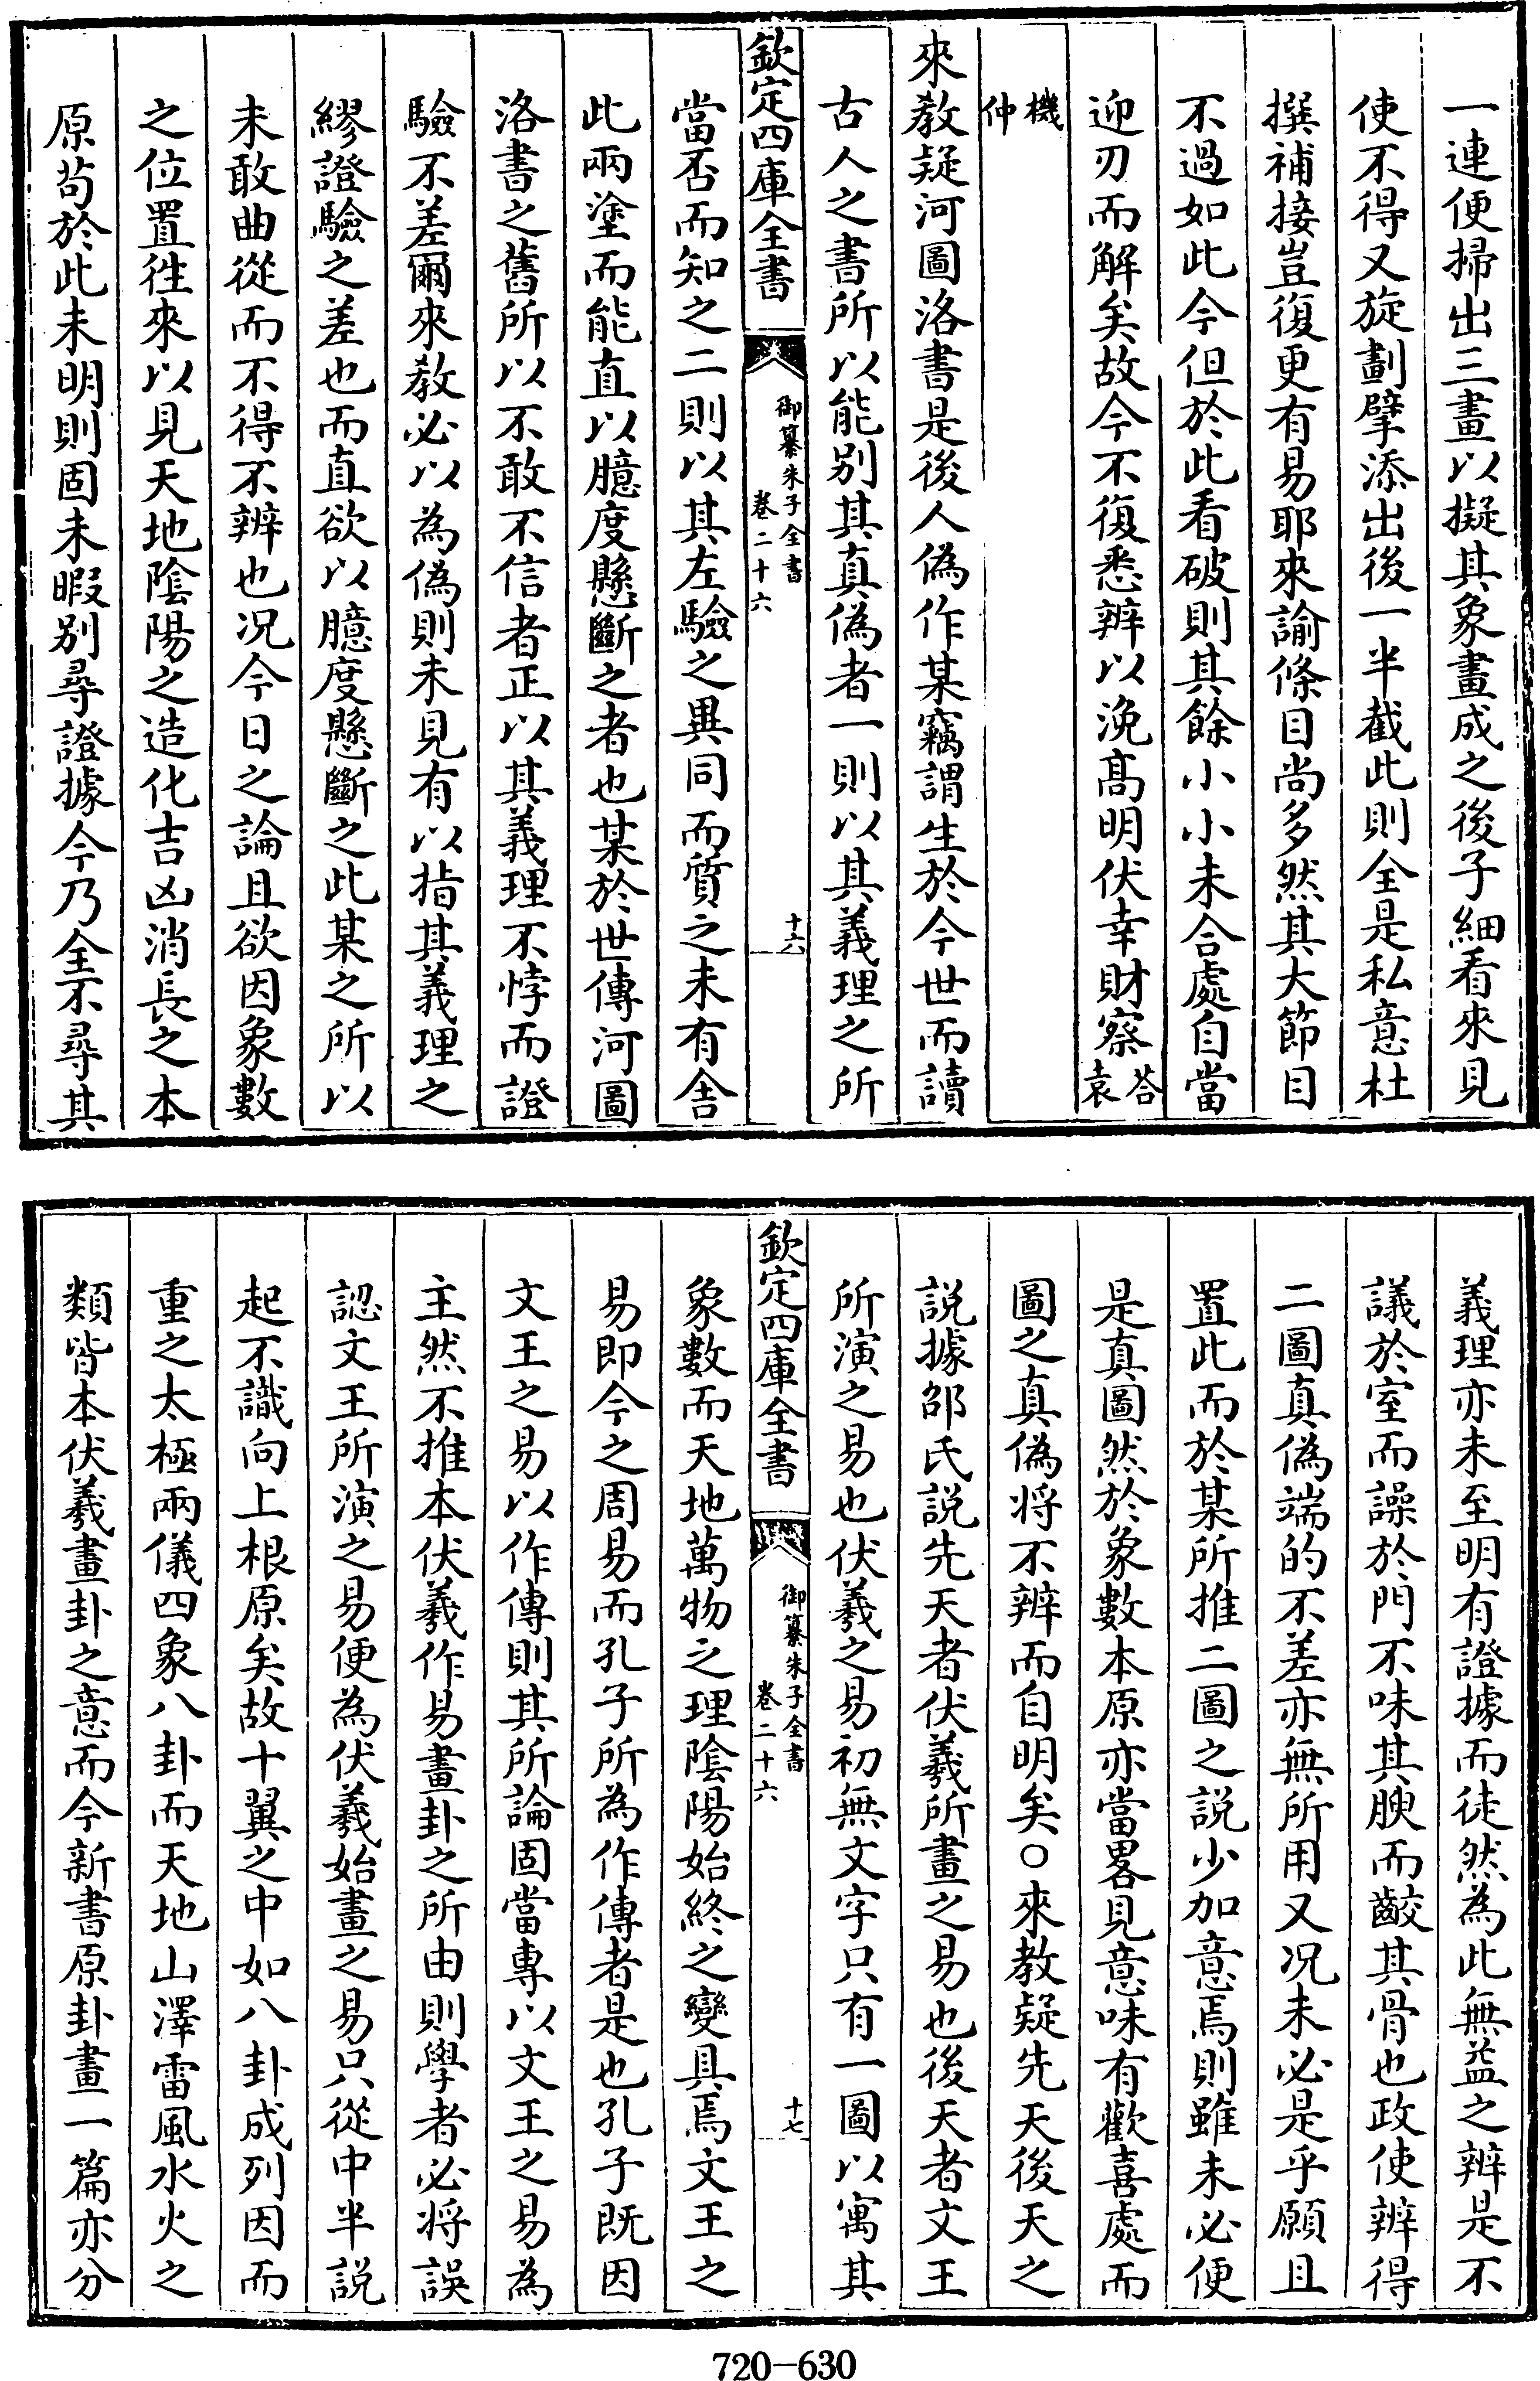 一連便掃出三畫以擬其象畫成之後子細看來見
使不得又旋劃擘添出後一半截此則全是私意杜
撰補接豈復更有易耶來諭條目尚多然其大節目
不過如此今但於此看破則其餘小小未合處自當
迎刃而解矣故今不復悉辨以浼髙明伏幸財察答袁
機仲
來教疑河圖洛書是後人偽作某竊謂生於今世而讀
古人之書所以能別其真偽者一則以其義理之所
欽定四庫全書 御纂朱子全書 卷二十六 十六
當否而知之二則以其左驗之異同而質之未有舍
此兩塗而能直以臆度懸斷之者也某於世傳河圖
洛書之舊所以不敢不信者正以其義理不悖而證
驗不差爾來教必以為偽則未見有以指其義理之
繆證驗之差也而直欲以臆度懸斷之此某之所以
未敢曲從而不得不辨也况今日之論且欲因象數
之位置徃來以見天地陰陽之造化吉凶消長之本
原茍於此未明則固未暇別尋證據今乃全不尋其
義理亦未至明有證據而徒然為此無益之辨是不
議於室而譟於門不味其腴而齩其骨也政使辨得
二圖真偽端的不差亦無所用又况未必是乎願且
置此而於某所推二圖之說少加意焉則雖未必便
是真圖然於象數本原亦當畧見意味有歡喜處而
圖之真偽将不辨而自明矣○來教疑先天後天之
說據邵氏說先天者伏羲所畫之易也後天者文王
所演之易也伏羲之易初無文字只有一圖以寓其
欽定四庫全書 御纂朱子全書 卷二十六 十七
象數而天地萬物之理陰陽始終之變具焉文王之
易即今之周易而孔子所為作傳者是也孔子既因
文王之易以作傳則其所論固當專以文王之易為
主然不推本伏羲作易畫卦之所由則學者必将誤
認文王所演之易便為伏羲始畫之易只從中半說
起不識向上根原矣故十翼之中如八卦成列因而
重之太極兩儀四象八卦而天地山澤雷風水火之
類皆本伏羲畫卦之意而今新書原卦畫一篇亦分
720—630